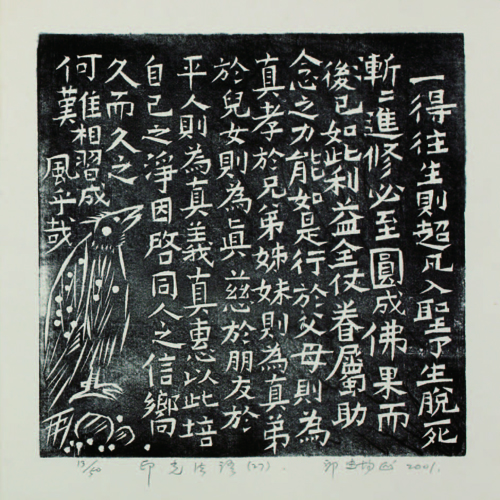 一得往生則超凡入聖了生脫死
漸〻進修必至圓成佛果而
後已如此利益全仗眷屬助
念之力能如是行於父母則為
真孝於兄弟姊妹則為真弟
於兒女則為真慈於朋友於
平人則為真義真惠以此培
自己之淨因啓同人之信嚮
久而久之
何難相習成
風乎哉
印光法語(27). 2001.